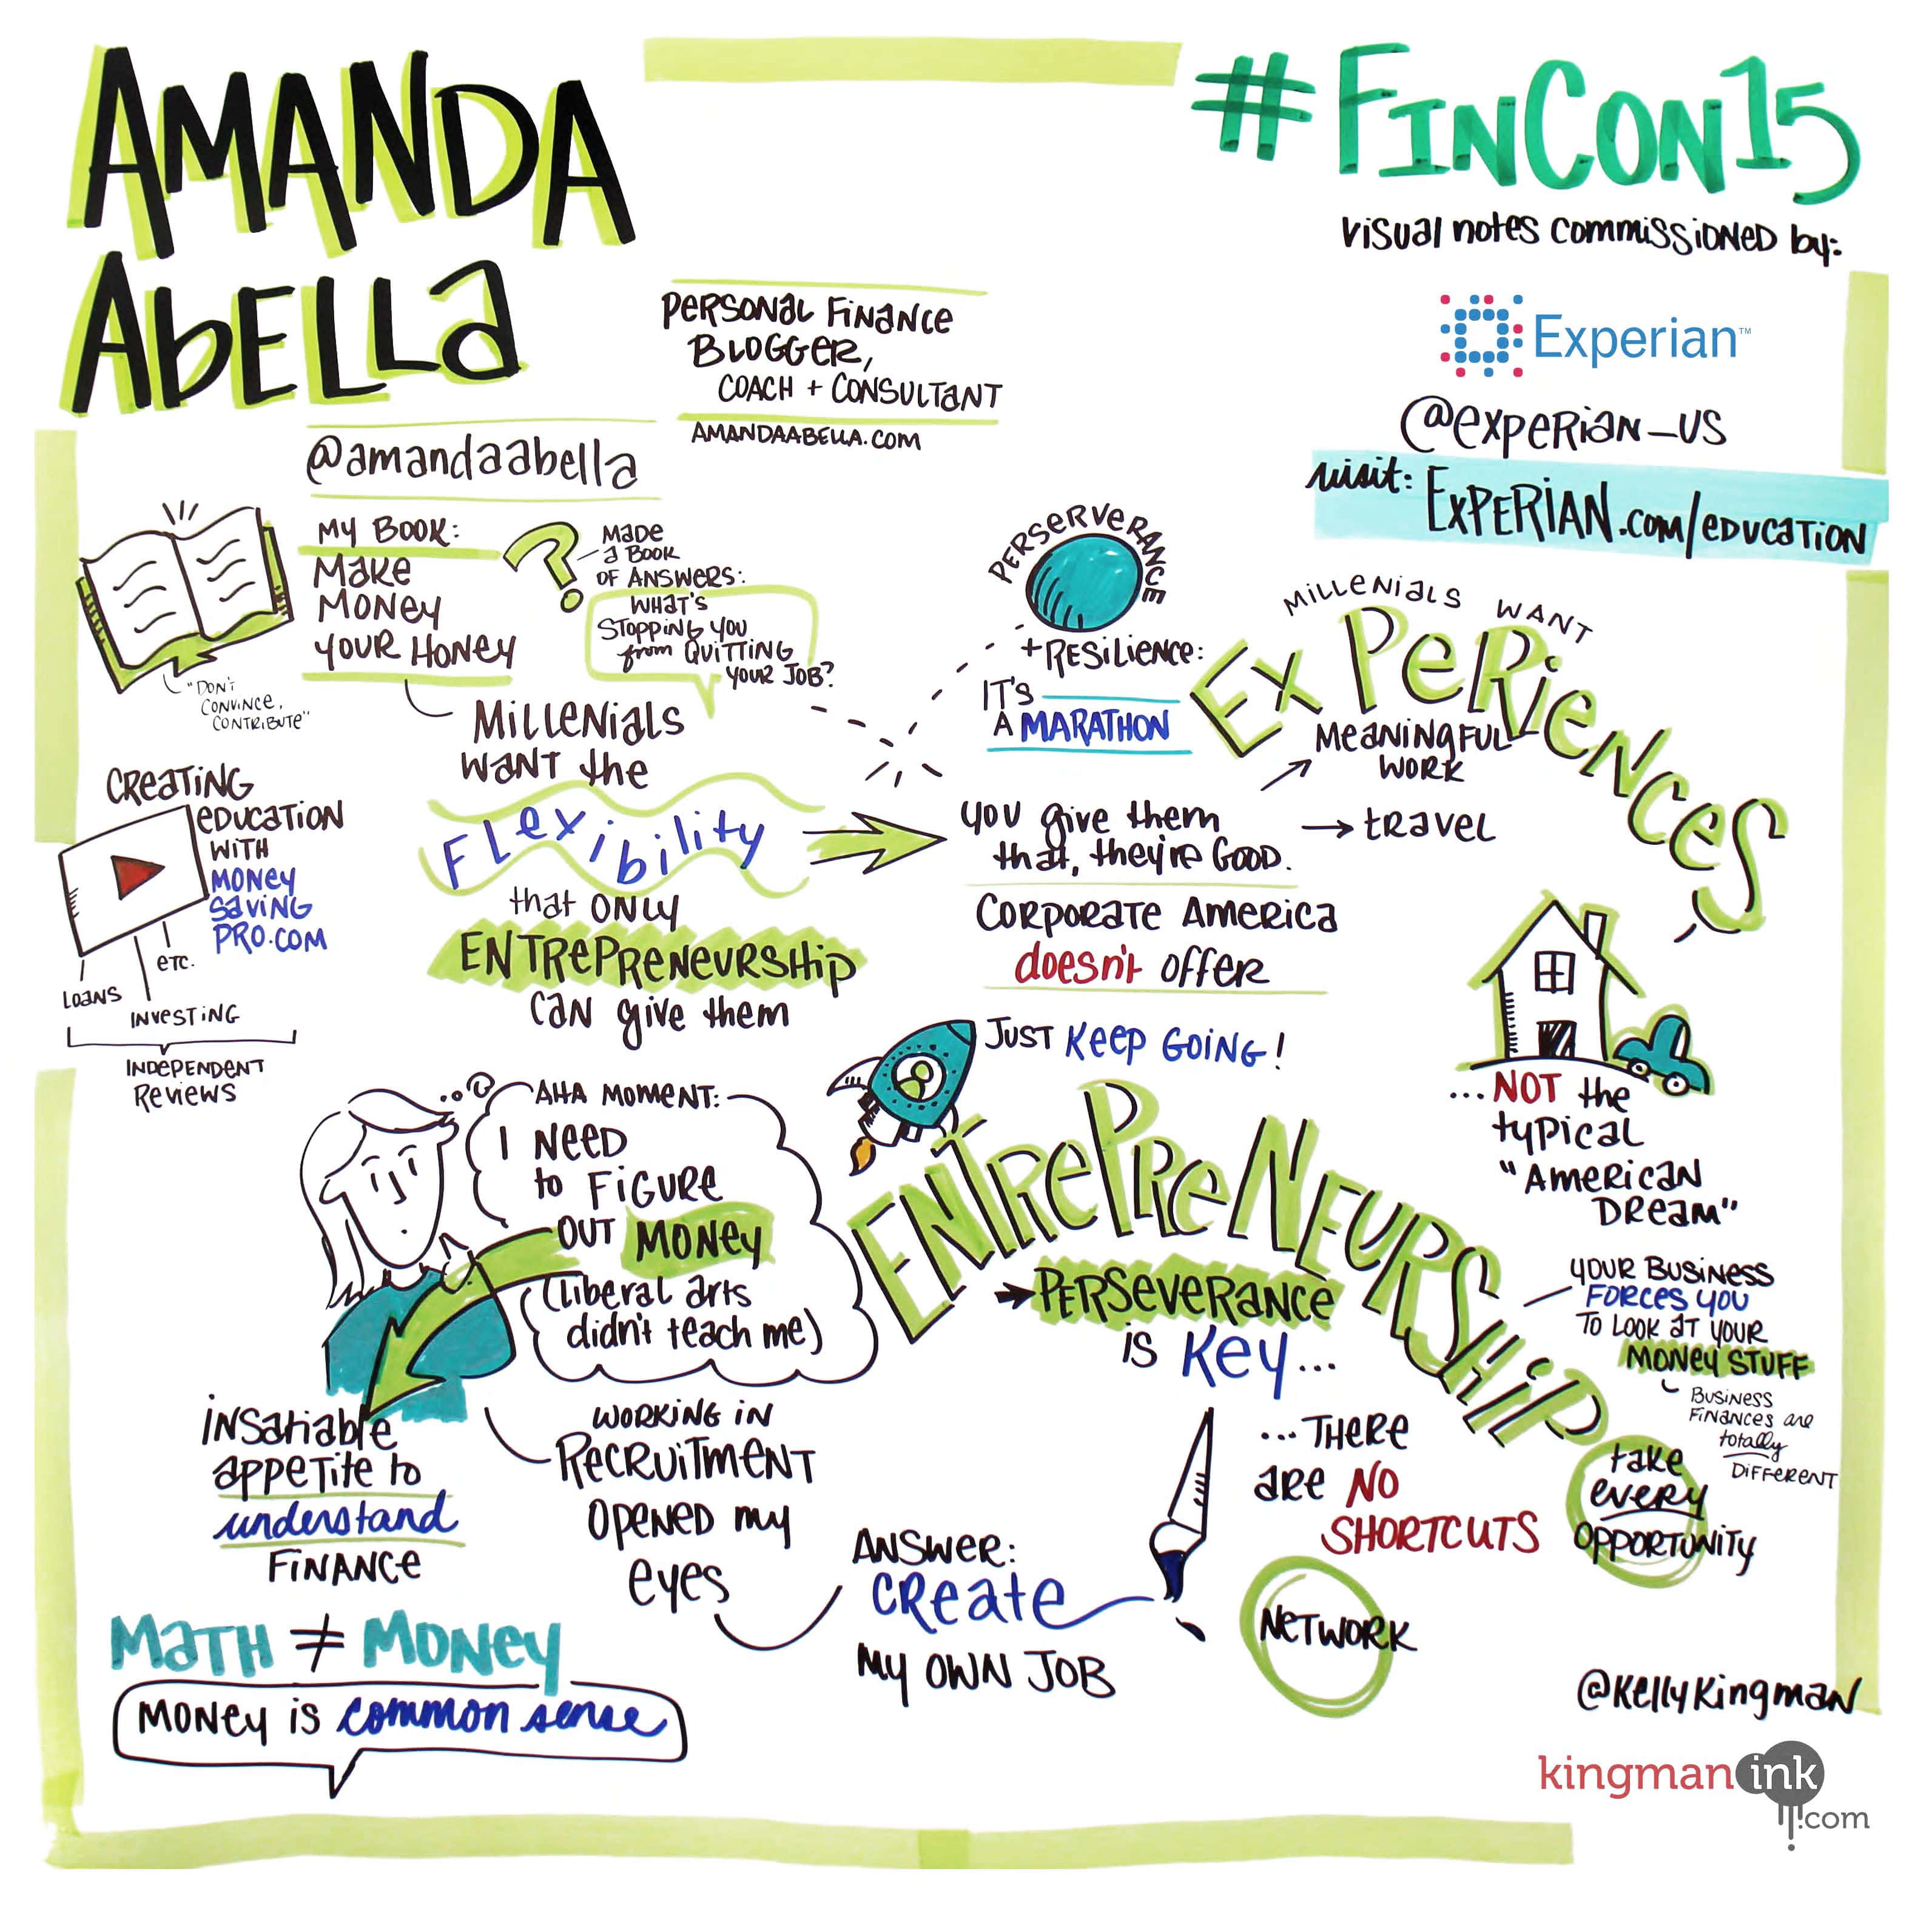 AMANDA
AbELLa
#FINCON15
visual notes commissioned by:
Experian™
@experian_us
visit: EXPERIAN.com/education
Personal Finance
Blogger,
coach + consultant
amandaabella.com
@amandaabella
My Book:
Make
Money
your Honey
"Don't
convince,
contribute"
Made
a Book
of answers:
What's
stopping you
from quitting
your job?
Millenials
want the
Flexibility
that only
Entrepreneurship
can give them
Perserverance
+ Resilience:
It's
a marathon
Millenials want
Experiences
Meaningful
work
→ travel
you give them
that, they're good.
Corporate America
doesn't offer
Creating
education
with
Money
Saving
Pro.com
Loans
Investing
etc.
Independent
Reviews
Just keep going!
... NOT the
typical
"American
Dream"
Aha moment:
I need
to figure
out money
(liberal arts
didn't teach me)
Entrepreneurship
→ Perseverance
is key...
... There
are no
shortcuts
your business
forces you
to look at your
money stuff
Business
finances are
totally
different
take
every
opportunity
Network
Insatiable
appetite to
understand
finance
working in
recruitment
opened my
eyes
Answer:
create
my own job
Math ≠ Money
Money is common sense
@KellyKingman
kingman ink
.com